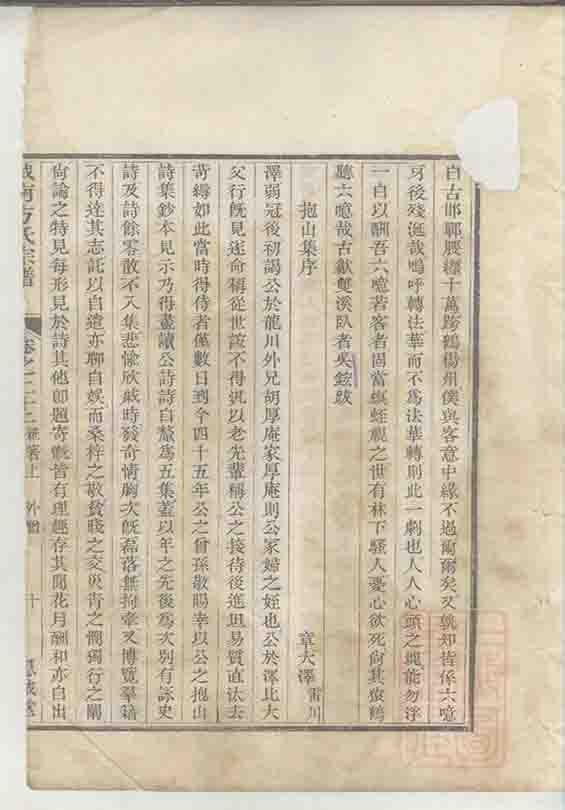 自古邯鄲腰纏十萬跨鶴揚州僕與客意中緣不過爾爾矣又孰知皆係六噫
牙後殘涎哉嗚呼轉法華而不爲法華轉則此一劇也人人心頭之塊能勿浮
一白以酬吾六噫若客者固當 蛭視之世有林下騷人憂心欲死尙其 鶴
聽六噫哉古歙雙溪臥者吳鋐跋
抱山集序 章大澤 雷川
澤弱冠後初謁公於龍川外兄胡厚庵家厚庵則公家婦之姪也公於澤比大
父行既見遂命稱從世誼不得汎以老先輩稱公之接待後進坦易質直汰去
苛縟如此當時得侍者僅數日到今四十五年公之曾孫敬賜幸以公之抱山
詩集鈔本見示乃得盡讀公詩詩自釐爲五集蓋以年之先後爲次別有詠史
詩及詩餘零散不入集悲愉欣戚時發奇情胸次既磊落無拘牽又博覽羣籍
不得達其志託以自遣亦聊自娛而桑梓之敬貧賤之交災眚之憫獨行之闡
尙論之特見每形見於詩其他卽題寄槪皆有理趣存其間花月酬和亦自出
城南方氏宗譜 卷之二十二 雜著上 外贈 十